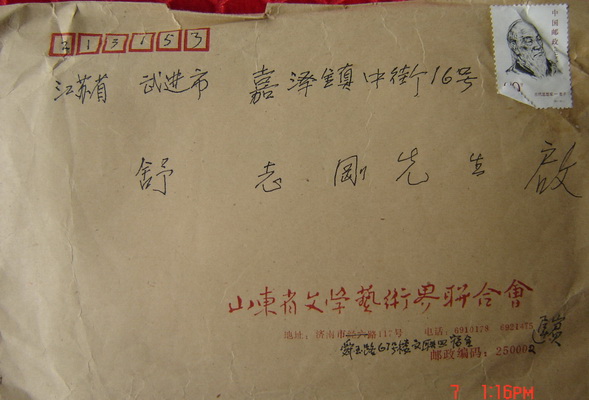 213153
中国邮政
江苏省 武进市 嘉泽镇中街16号
舒志刚先生 启
山東省文学藝術界聯合會
地址：济南市经六路117号 电话：6910128 6921475
舜玉路67号楼
邮政编码：250002
7 1:16PM